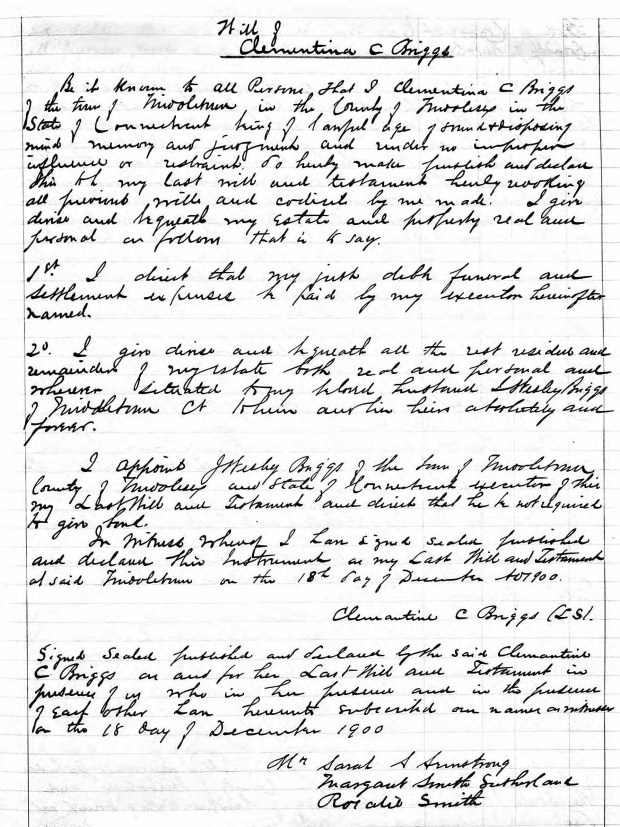 Will of
Clementina C Briggs
Be it Known to all Persons, that I Clementina C Briggs
of the town of Middletown in the County of Middlesex in the
State of Connecticut being of lawful age of sound & disposing
mind memory and judgment and under no improper
influence or restraint do hereby make publish and declare
this to be my last will and testament hereby revoking
all previous wills and codicils by me made. I give
devise and bequeath my Estate and property real and
personal as follows that is to say.
1st. I direct that my just debts funeral and
settlement expenses be paid by my executor hereinafter
named.
2d. I give devise and bequeath all the rest residue and
remainder of my estate both real and personal and
wherever situated to my beloved husband J Wesley Briggs
of Middletown Ct to him and his heirs absolutely and
forever.
I appoint J Wesley Briggs of the town of Middletown,
County of Middlesex and State of Connecticut executor of this
my Last Will and Testament and direct that he be not required
to give bond.
In Witness whereof I have signed sealed published
and declared this Instrument as my Last Will and Testament
at said Middletown on the 18th day of December AD 1900.
Clemantine C Briggs (LS).
Signed sealed published and declared by the said Clemantine
C Briggs as and for her Last Will and Testament in
presence of us who in her presence and in the presence
of each other have hereunto subscribed our names as witnesses
on this 18 day of December 1900
Sarah S Armstrong
Margaret Smith Sutherland
Rosalie Smith